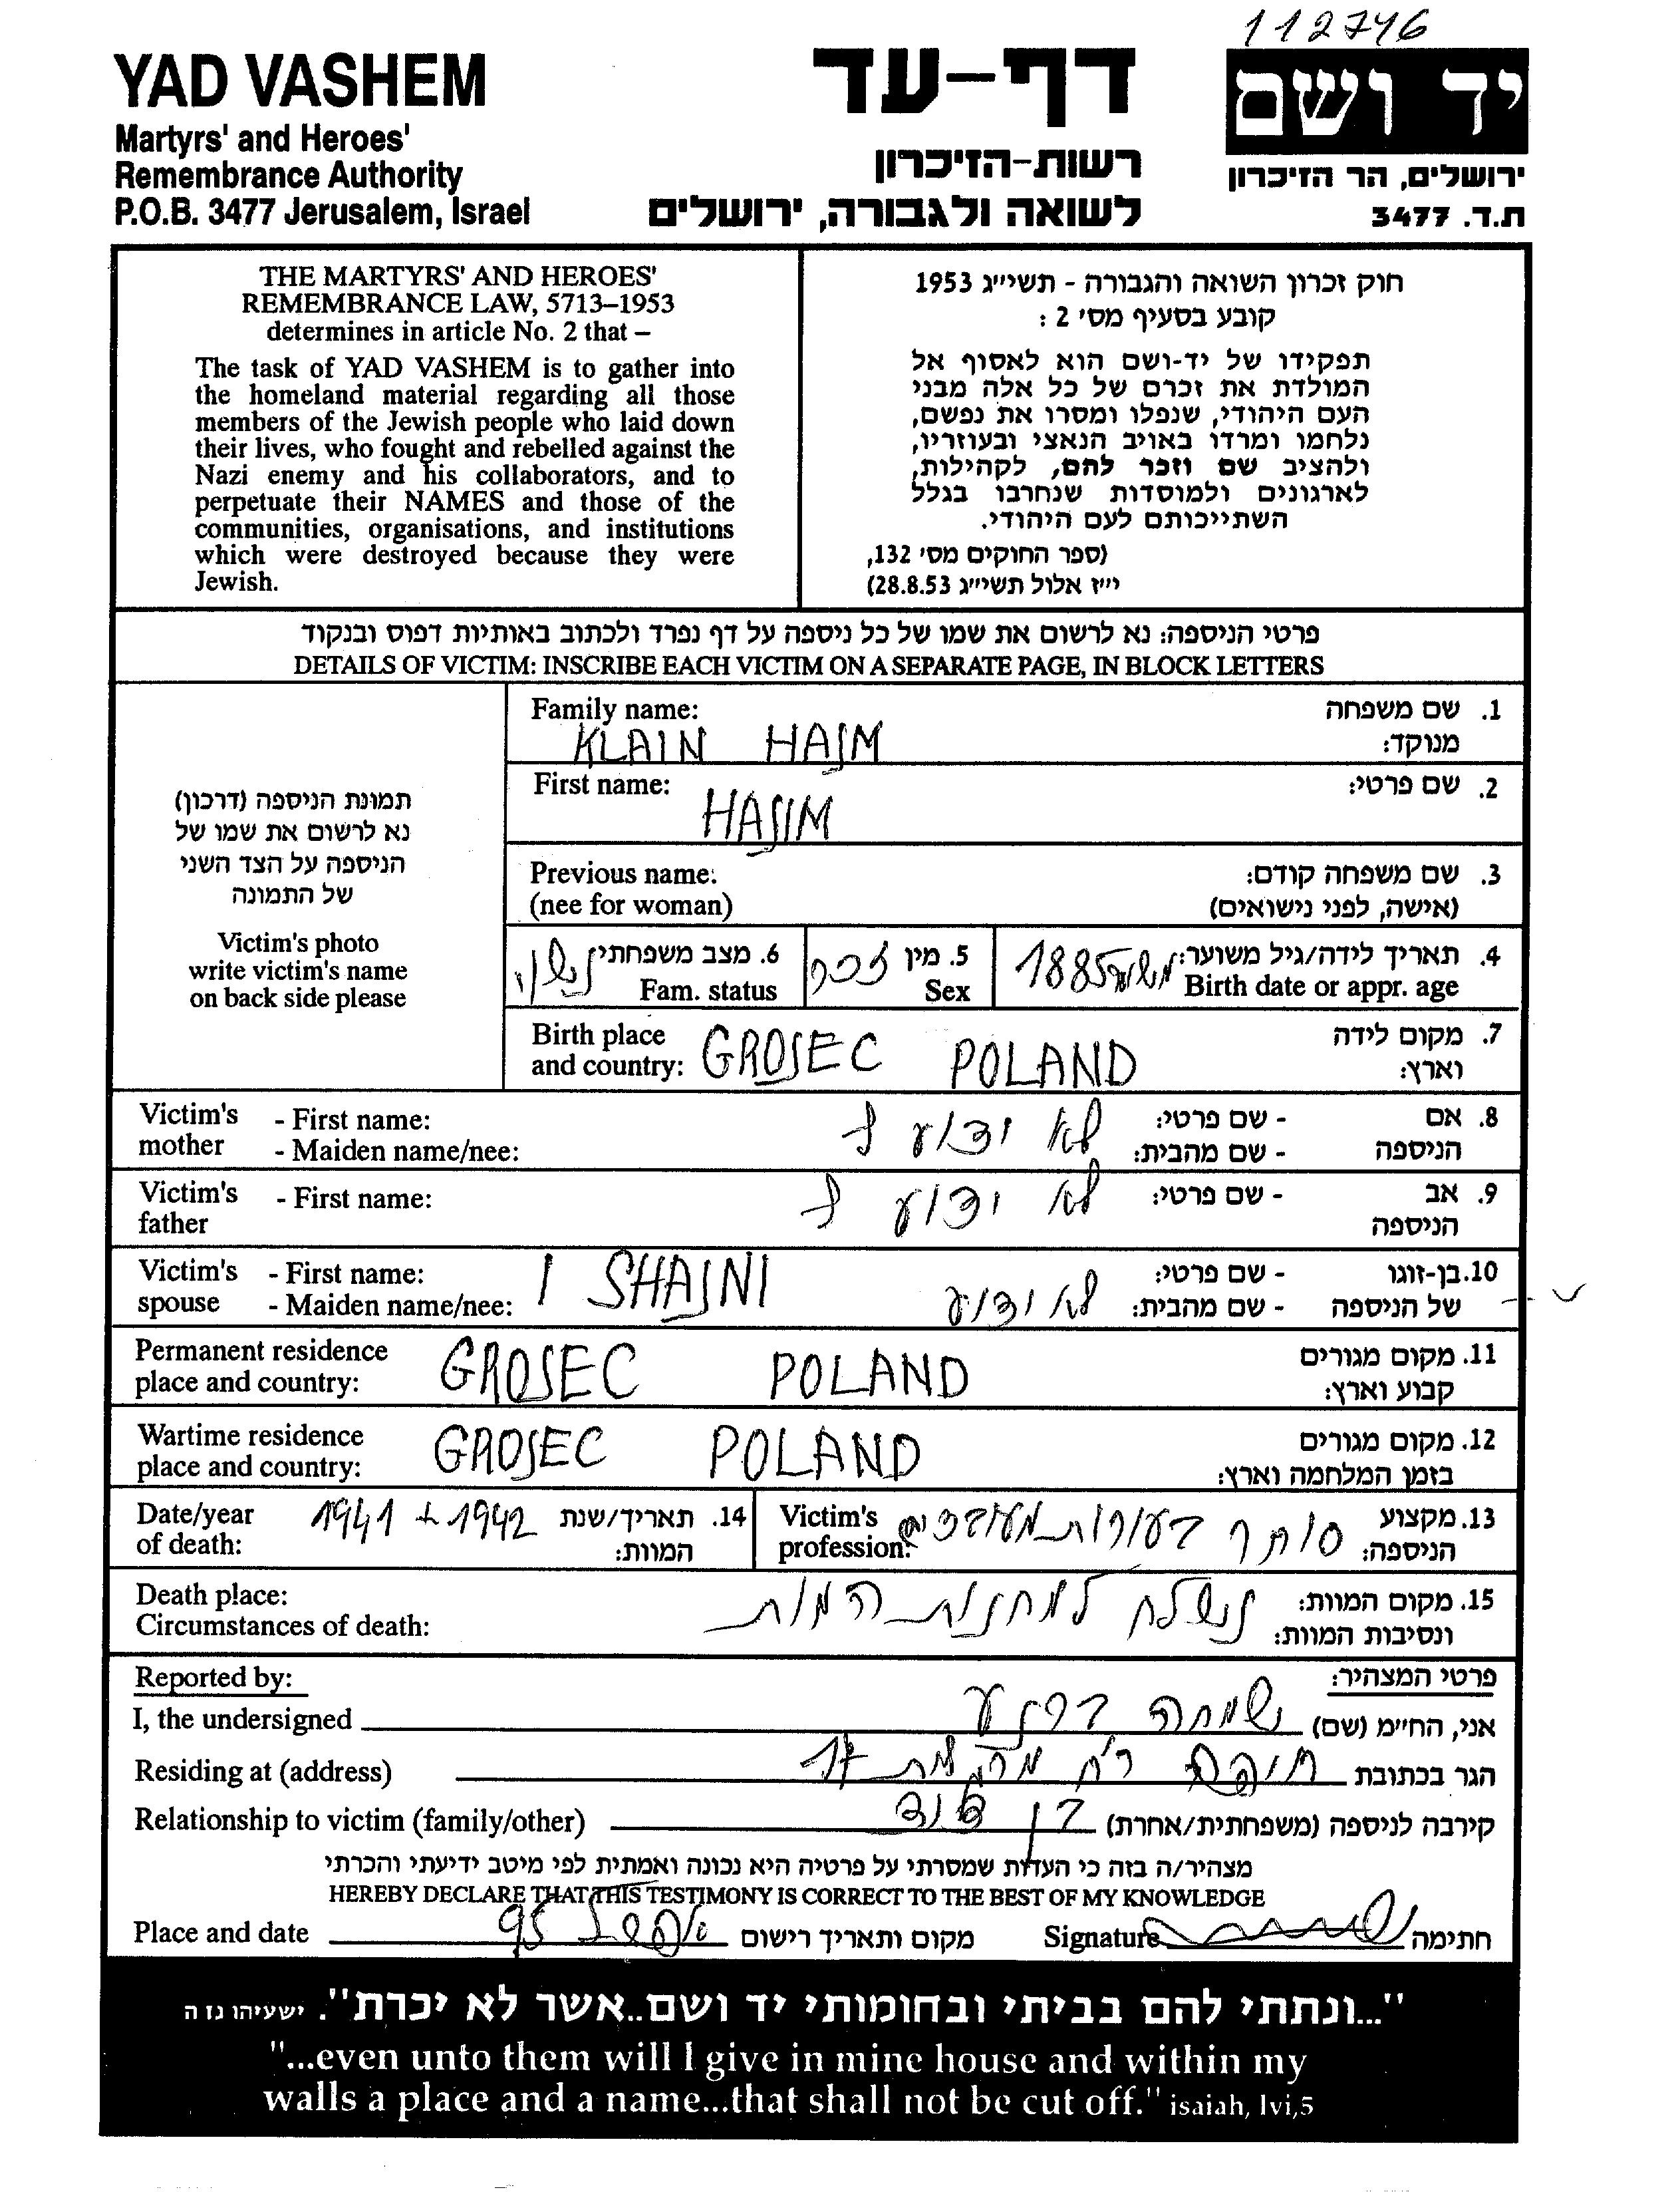 112746
YAD VASHEM
Martyrs' and Heroes'
Remembrance Authority
P.O.B. 3477 Jerusalem, Israel
דף-עד
רשות-הזיכרון
לשואה ולגבורה, ירושלים
יד ושם
ירושלים, הר הזיכרון
ת.ד. 3477
THE MARTYRS' AND HEROES'
REMEMBRANCE LAW, 5713–1953
determines in article No. 2 that –
The task of YAD VASHEM is to gather into
the homeland material regarding all those
members of the Jewish people who laid down
their lives, who fought and rebelled against the
Nazi enemy and his collaborators, and to
perpetuate their NAMES and those of the
communities, organisations, and institutions
which were destroyed because they were
Jewish.
חוק זכרון השואה והגבורה - תשי״ג 1953
קובע בסעיף מס' 2 :
תפקידו של יד-ושם הוא לאסוף אל
המולדת את זכרם של כל אלה מבני
העם היהודי, שנפלו ומסרו את נפשם,
נלחמו ומרדו באויב הנאצי ובעוזריו,
ולהציב שם וזכר להם, לקהילות,
לארגונים ולמוסדות שנחרבו בגלל
השתייכותם לעם היהודי.
(ספר החוקים מס' 132,
י״ז אלול תשי״ג 28.8.53)
פרטי הניספה: נא לרשום את שמו של כל ניספה על דף נפרד ולכתוב באותיות דפוס ובנקוד
DETAILS OF VICTIM: INSCRIBE EACH VICTIM ON A SEPARATE PAGE, IN BLOCK LETTERS
תמונת הניספה (דרכון)
נא לרשום את שמו של
הניספה על הצד השני
של התמונה
Victim's photo
write victim's name
on back side please
Family name: 1. שם משפחה
KLAIN HAJM מנוקד:
First name: 2. שם פרטי:
HAJIM
Previous name: 3. שם משפחה קודם:
(nee for woman) (אישה, לפני נישואים)
4. תאריך לידה/גיל משוער: 1885
Birth date or appr. age
5. מין זכר
Sex
6. מצב משפחתי נשוי
Fam. status
Birth place 7. מקום לידה
and country: GROJEC POLAND וארץ:
Victim's - First name: לא ידוע לי - שם פרטי: 8. אם
mother - Maiden name/nee: - שם מהבית: הניספה
Victim's - First name: לא ידוע לי - שם פרטי: 9. אב
father הניספה
Victim's - First name: SHAJNI - שם פרטי: 10. בן-זוגו
spouse - Maiden name/nee: לא ידוע - שם מהבית: של הניספה
Permanent residence 11. מקום מגורים
place and country: GROJEC POLAND קבוע וארץ:
Wartime residence 12. מקום מגורים
place and country: GROJEC POLAND בזמן המלחמה וארץ:
Date/year 1941 + 1942 14. תאריך/שנת
of death: המוות:
Victim's סוחר בעורות מעובדים 13. מקצוע
profession: הניספה:
Death place: נשלח למחנות המוות 15. מקום המוות:
Circumstances of death: ונסיבות המוות:
Reported by: פרטי המצהיר:
I, the undersigned שמחה אני, החי״מ (שם)
Residing at (address) חיפה רח הגר בכתובת
Relationship to victim (family/other) בן דוד קירבה לניספה (משפחתית/אחרת)
מצהיר/ה בזה כי העדות שמסרתי על פרטיה היא נכונה ואמתית לפי מיטב ידיעתי והכרתי
HEREBY DECLARE THAT THIS TESTIMONY IS CORRECT TO THE BEST OF MY KNOWLEDGE
Place and date 95 מקום ותאריך רישום Signature חתימה
"...ונתתי להם בביתי ובחומותי יד ושם..אשר לא יכרת". ישעיהו נז ה
"...even unto them will I give in mine house and within my
walls a place and a name...that shall not be cut off." isaiah, lvi,5